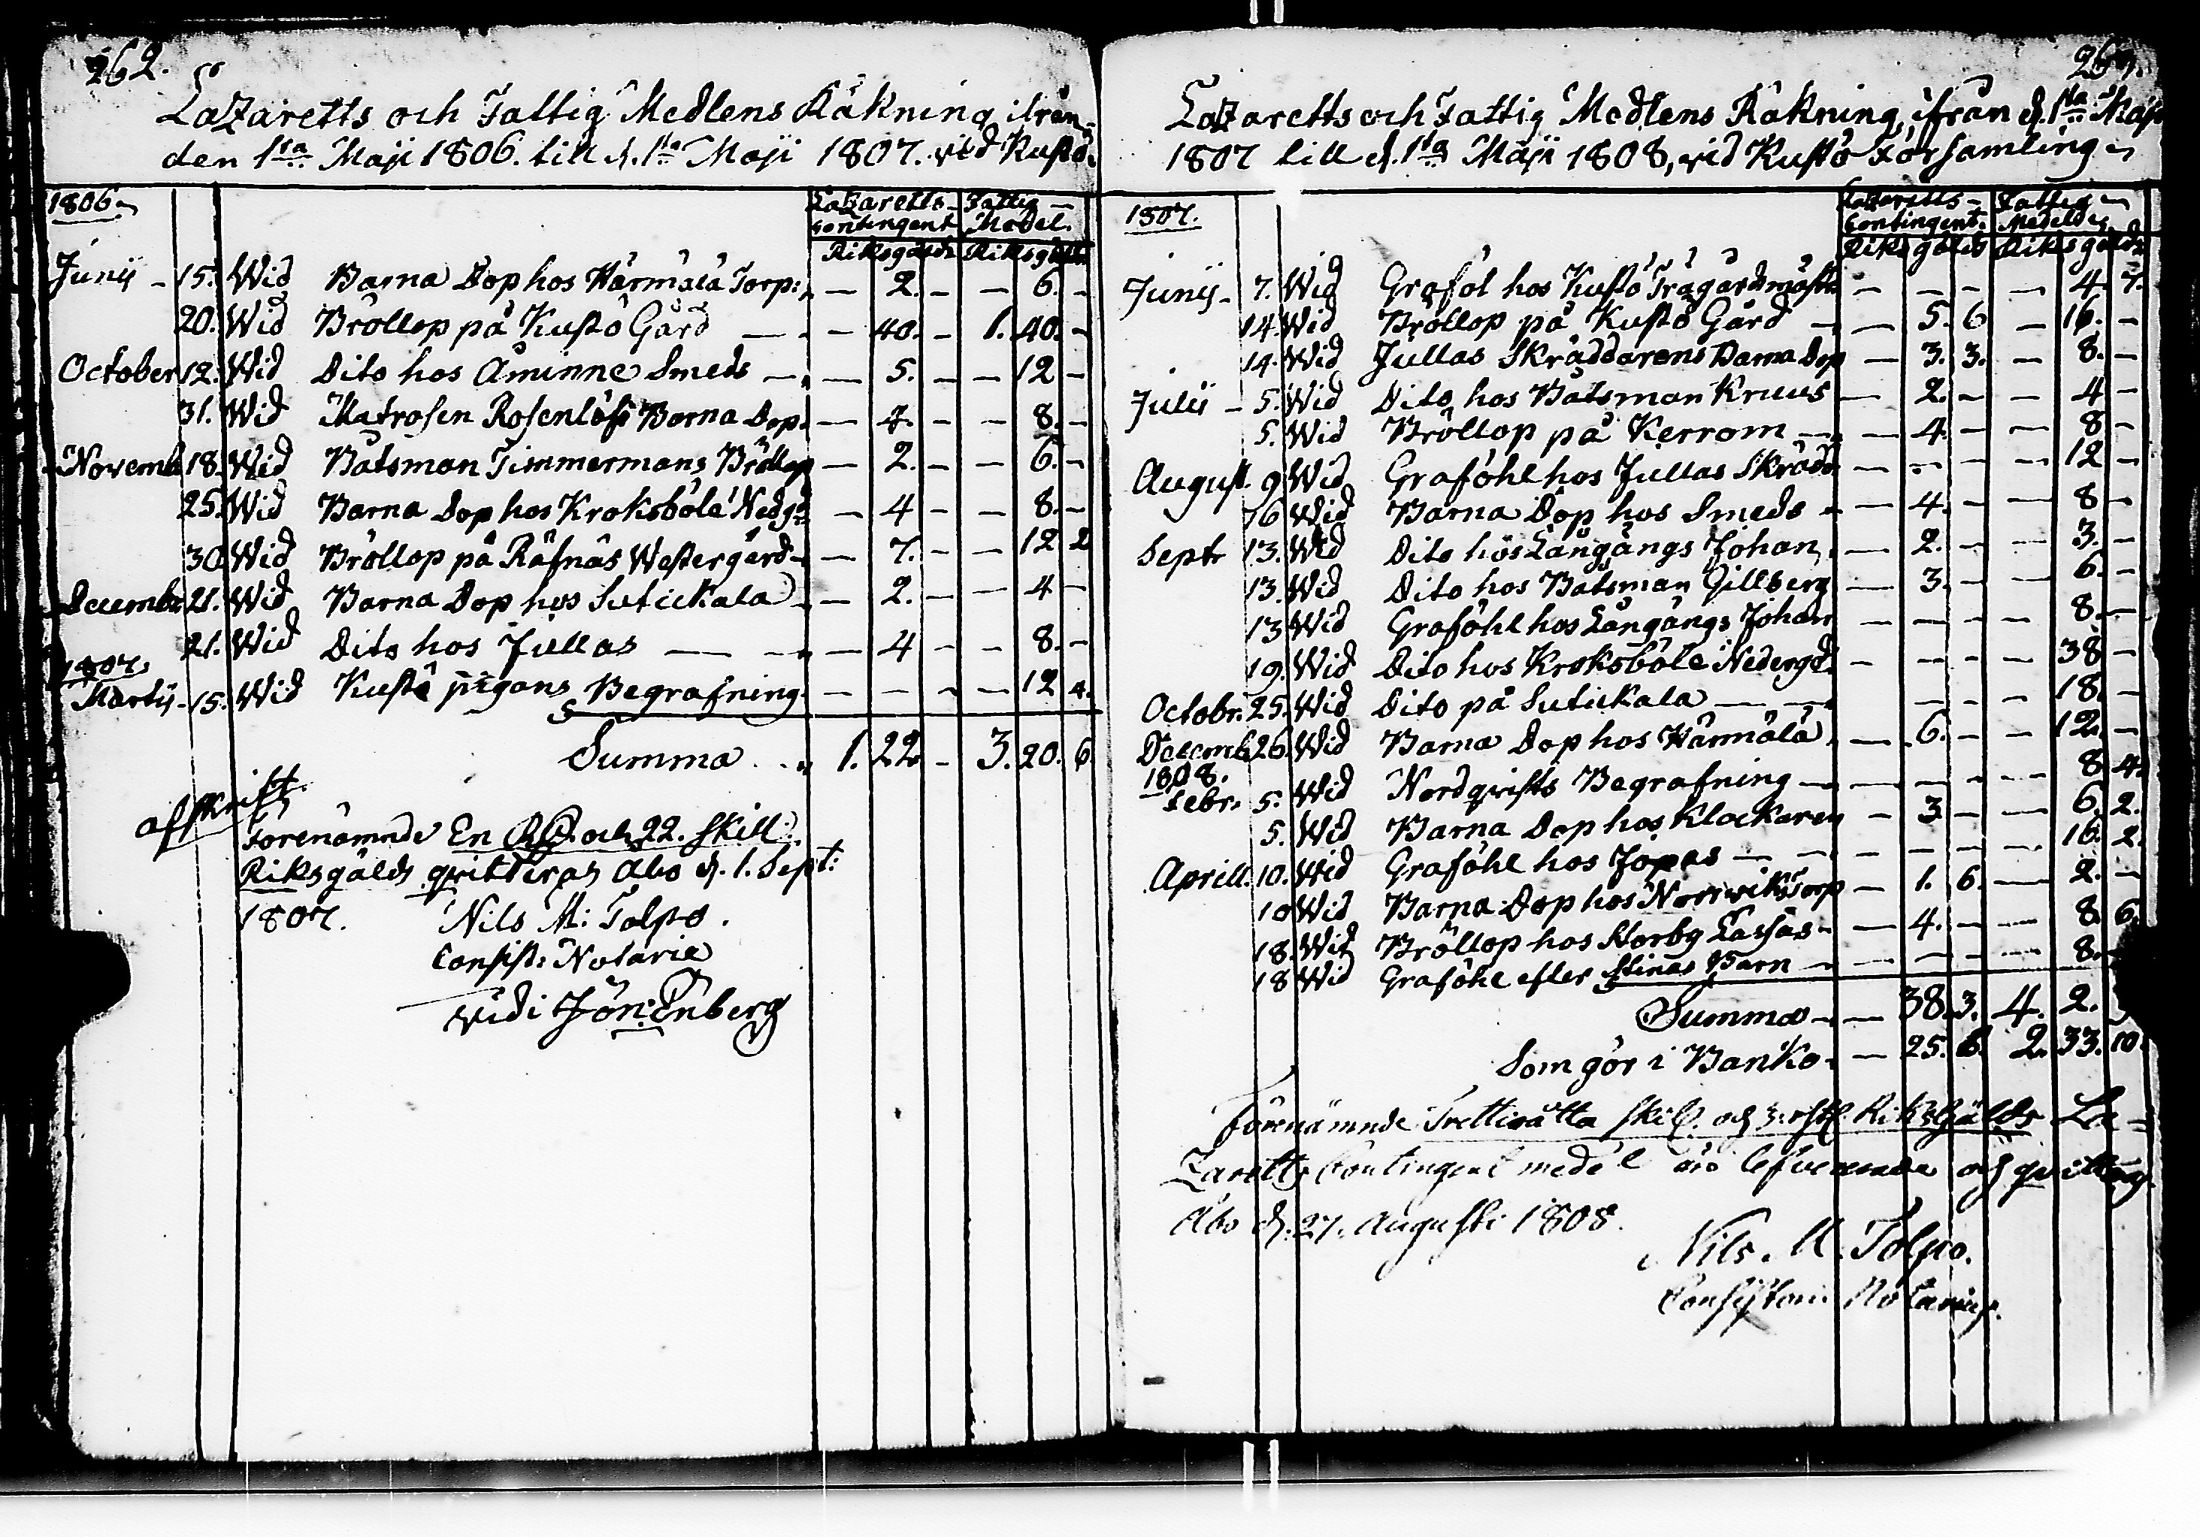 262.
Lazaretts och Fattig Medlens Räkning ifrån
den 1sta Maji 1806. till d. 1sta Maji 1807. vid Kustö
1806. Lazaretts Contingent Fattig Medel.
Riksgälds Riksgälds
Junii - 15. Wid Barna Dop hos Härmälä Torp: — 2. — — 6. —
20. Wid Bröllop på Kustö Gård — — 40. — 1. 40. —
October 12. Wid Dito hos Åminne Smeds — — 5. — — 12 —
31. Wid Matrosen Rosenlöfs Barna Dop. — 4. — — 8. —
Novemb. 18. Wid Båtsman Timmermans Bröllop — 2. — — 6. —
25. Wid Barna Dop hos Kroksböle Nedg: — 4 — — 8. —
30. Wid Bröllop på Räfnäs Westergård — — 7. — — 12 2
Decemb. 21. Wid Barna Dop hos Sutickala — 2. — — 4 —
21. Wid Dito hos Jullas — — 4 — — 8. —
1807.
Martij - 15. Wid Kustö pigans Begrafning. — — — — 12 4.
Summa 1. 22 — 3. 20. 6.
afskrift.
Förenämnde En Rd. och 22. skill:
Riksgälds qvitteras Åbo d. 1. Sept:
1807. Nils M: Tolpo.
Consist: Notarie
vidi Jön: Enberg
Lazaretts och Fattig Medlens Räkning, ifrån d. 1sta Maji
1807 till d. 1sta Maji 1808, vid Kustö Församling
1807. Lazaretts Contingent. Fattig Medel
Riks gälds Riks gälds
Junij - 7. Wid Graföl hos Kustö Trägårdmäst: — — — — 4. 7.
14. Wid Bröllop på Kustö Gård — — 5. 6 — 16. —
14. Wid Jullas Skräddarens Barna Dop — 3. 3. — 8. —
Julii - 5. Wid Dito hos Båtsman Kruus — 2. — — 4 —
5. Wid Bröllop på Kerrom — — 4. — — 8 —
August. 9. Wid Graföhl hos Jullas Skrädd — — — — 12 —
16 Wid Barna Dop hos Smeds — 4. — — 8 —
Septr 13. Wid Dito hos Långångs Johan — 2. — — 3. —
13. Wid Dito hos Båtsman Gillberg — 3. — — 6. —
13 Wid Graföhl hos Långångs Johan — — — — 8. —
19. Wid Dito hos Kroksböle Nedergd. — — — — 38 —
Octobr. 25. Wid Dito på Sutickala — — — — — 18. —
Decemb. 26. Wid Barna Dop hos Härmälä — 6. — — 12. —
1808.
Febr. 5. Wid Nordqvists Begrafning — — — — — 8 4.
5. Wid Barna Dop hos Klockaren — 3. — — 6. 2.
Aprill. 10. Wid Graföhl hos Jopas — — — — 16. 2.
10 Wid Barna Dop hos Norrviks Torp — 1. 6. — 2. —
18. Wid Bröllop hos Norby Lassas — 4. — — 8. 6.
18 Wid Graföhl efter Stinas Barn — — — — 8.
Summa — 38. 3. 4. 2.
Som gör i Banko. — 25. 6. 2. 33. 10.
Förenämnde Trettioåtta skill. och 3: rst. Riksgälds La-
zaretts Contingent medel äro lefvererade och qvitteras
Åbo d. 27. Augusti 1808.
Nils. M. Tolpo.
Consistorii Notarius.